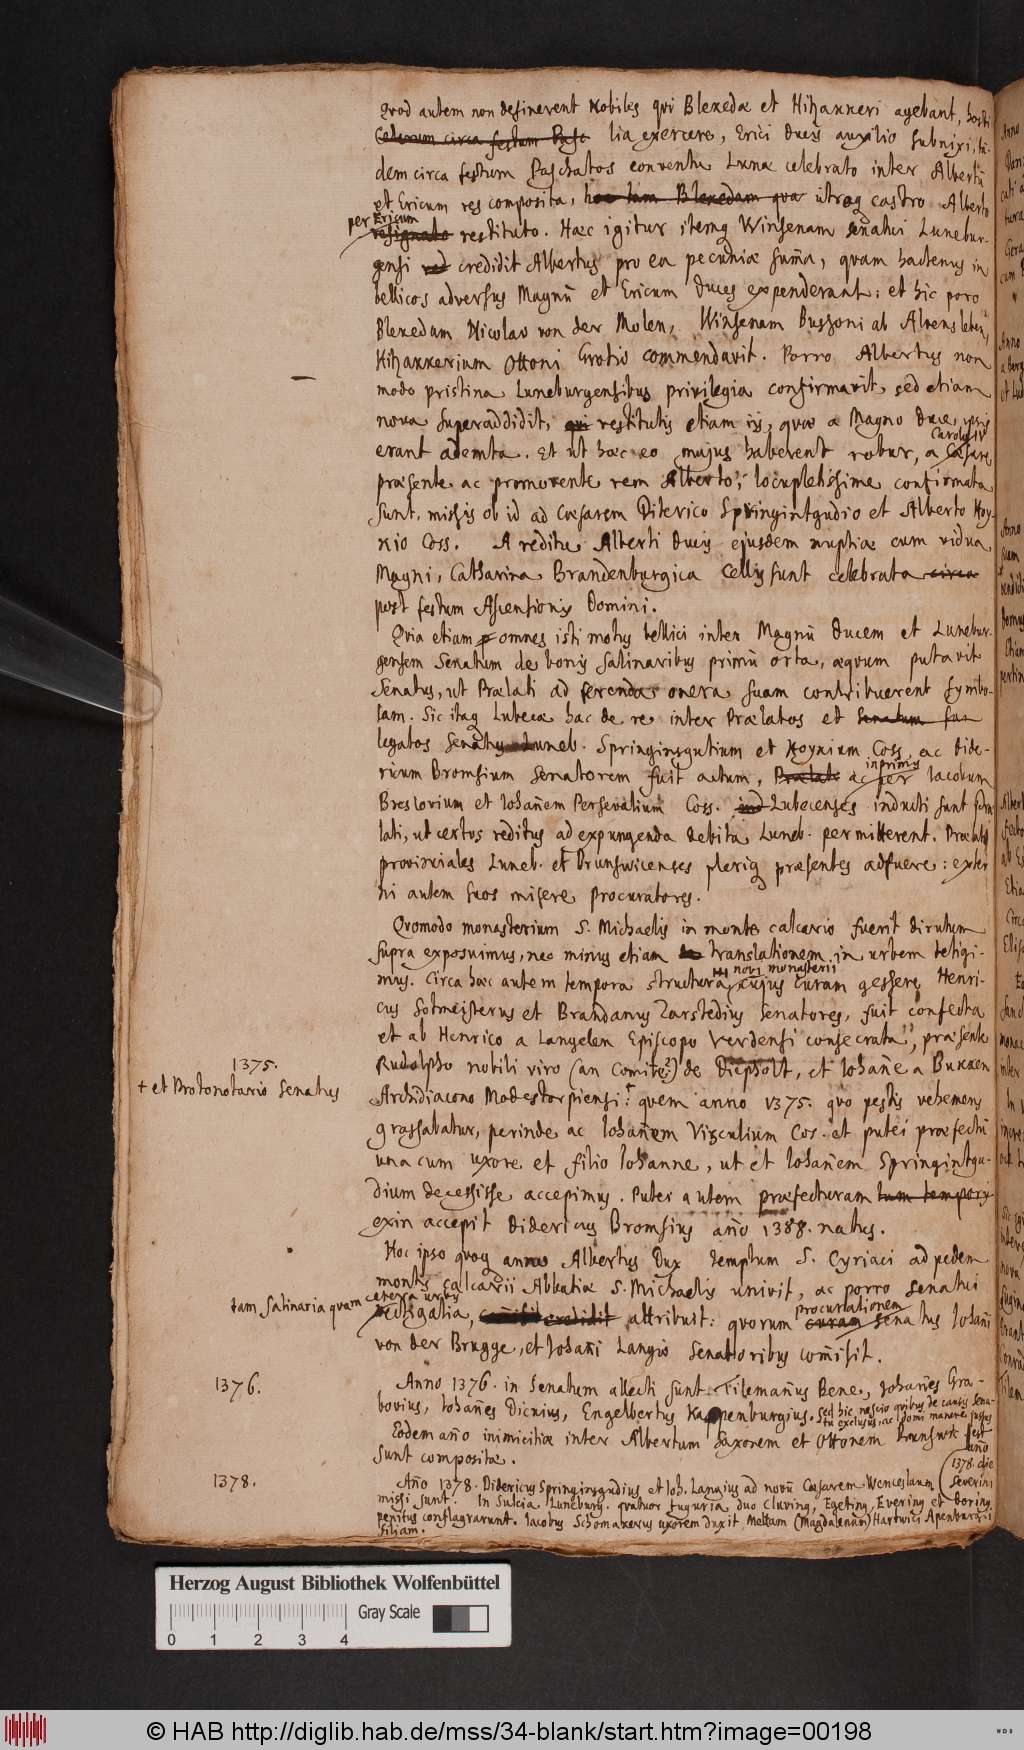 Quod autem non desinerent Nobiles qui Blekedæ et Hizakkeri agebant, hosti-
Ceterum circa festum Pasc lia exercere, Erici ducis auxilio subnixi, tan-
dem circa festum Paschatos conventu Lunæ celebrato inter Albertū
et Ericum res composita, hac tam Blekedam qua utroq castro Alberto
per Ericum
resignato restituto. Hæc igitur itemq Winsenam senatui Lunebur-
gensi red credidit Albertus pro ea pecuniæ sum̄a, quam hactenus in
bellicos adversus Magnū et Ericum duces expenderant: et hic porro
Blekedam Nicolao von der Molen, Winsenam Bussoni ab Alvensleben,
Hizakkerium Ottoni Grotio commendavit. Porro Albertus non
modo pristina Luneburgensibus privilegia confirmavit sed etiam
nova superaddidit, qui restitutis etiam iis, quæ a Magno duce ipsis
erant ademta. Et ut hæc eo majus haberent robur, a Carolo IV Cæsare
præsente ac promovente rem Alberto, locupletissime confirmata
sunt, missis ob id ad Cæsarem Diterico Springintgudio et Alberto Hoy-
kio Coss. A reditu Alberti ducis ejusdem nuptiæ cum vidua
Magni, Catharina Brandenburgica Cellis sunt celebrata circa
post festum Ascensionis Domini.
Quia etiam omnes isti motus bellici inter Magnū ducem et Lunebur-
gensem Senatum de bonis salinaribus primū orta, æquum putavit
Senatus, ut Prælati ad ferenda onera suam contribuerent symbo-
lam. Sic itaq Lubecæ hac de re inter Prælatos et Senatum sun
legatos Senatus Luneb. Springinsgutium et Hoykium Coss. ac Dide-
ricum Bromsium Senatorem fuit actum, Prælati ac per inprimis Iacobum
Breslovium et Iohañem Persevalium Coss. ind Lubecenses inducti sunt Præ-
lati, ut certos reditus ad expungenda debita Luneb. permitterent. Prælati
provinciales Luneb. et Brunswicenses pleriq præsentes adfuere: exter-
ni autem suos misere procuratores.
Quomodo monasterium S. Michaelis in monte calcario fuerit dirutum
supra exposuimus, nec minus etiam de translationem in urbem tetigi-
mus. Circa hæc autem tempora structura novi monasterii cujus curam gessere Henri-
cus Sotmeisterus et Brandanus Zarstedius Senatores, fuit confecta
et ab Henrico a Langelen Episcopo Verdensi consecrata, præsente
Rudolpho nobili viro (an Comite?) de Diepholt, et Iohañe a Bukken
1375.
+ et Protonotario Senatus
Archidiacono Modestorpiensi + quem anno 1375. quo pestis vehemens
grassabatur, perinde ac Iohañem Visculium Cos. et putei præfectū
una cum uxore et filio Iohanne, ut et Iohañem Springintgu-
dium decessisse accepimus. Putei autem præfecturam tum temporis
exin accepit Didericus Bromsius añō 1388. natus.
Hoc ipso quoq anno Albertus Dux templum S. Cyriaci ad pedem
montis calcarii Abbatiæ S. Michaelis univit, ac porro senatui
tam Salinaria quam cetera urbis
vectigalia, com̄isit credidit attribuit: quorum curam procurationem senatus Iohañi
von der Brugge, et Iohañi Langio Senatoribus com̄isit.
1376.
Anno 1376. in Senatum allecti sunt Tilemañus Bene, Iohañes Gra-
bovius, Iohañes Dicxius, Engelbertus Kappenburgius. sed hic nescio quibus de causis Sena-
tu exclusus, ac domi manere jussus est
Eodem añō inimicitiæ inter Albertum Saxonem et Ottonem Brunswic
sunt compositæ.
1378.
Añō 1378. Didericus Springinsgudius et Ioh. Langius ad novū Cæsarem Wenceslaum
(añō 1378. die Severini
missi sunt. In Sulcia Luneburg. quatuor tuguria, duo Cluving, Egeting, Evering et Döring
penitus conflagrarunt. Iacobus Schomakerus uxorem duxit Mettam (Magdalenam) Hartwici Apenburgii
filiam.
Herzog August Bibliothek Wolfenbüttel
Gray Scale
0 1 2 3 4
© HAB http://diglib.hab.de/mss/34-blank/start.htm?image=00198